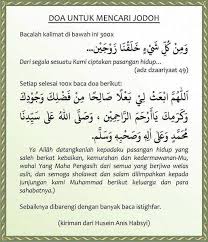 DOA UNTUK MENCARI JODOH
Bacalah kalimat di bawah ini 300x
وَمِنْ كُلِّ شَيْءٍ خَلَقْنَا زَوْجَيْنِ...
Dari segala sesuatu Kami ciptakan pasangan hidup...
(adz dzaariyaat 49)
Setiap selesai 100x baca doa berikut:
اَللّٰهُمَّ ابْعَثْ لِيْ بَعْلًا صَالِحًا مِنْ فَضْلِكَ وَجُوْدِكَ
وَكَرَمِكَ يَا أَرْحَمَ الرَّاحِمِيْنَ، وَصَلَّى اللهُ عَلَى سَيِّدِنَا
مُحَمَّدٍ وَعَلَى آلِهِ وَصَحْبِهِ وَسَلَّمَ.
Ya Allah datangkalah kepadaku pasangan hidup yang
saleh berkat kebaikan, kemurahan dan kedermawanan-Mu,
wahai Yang Maha Pengasih dari semua yang berjiwa welas
asih, dan semoga sholawat dan salam dilimpahkan kepada
junjungan kami Muhammad berikut keluarga dan para
sahabatnya.)
Sebaiknya dibarengi dengan banyak baca istighfar.
(kiriman dari Husein Anis Habsyi)